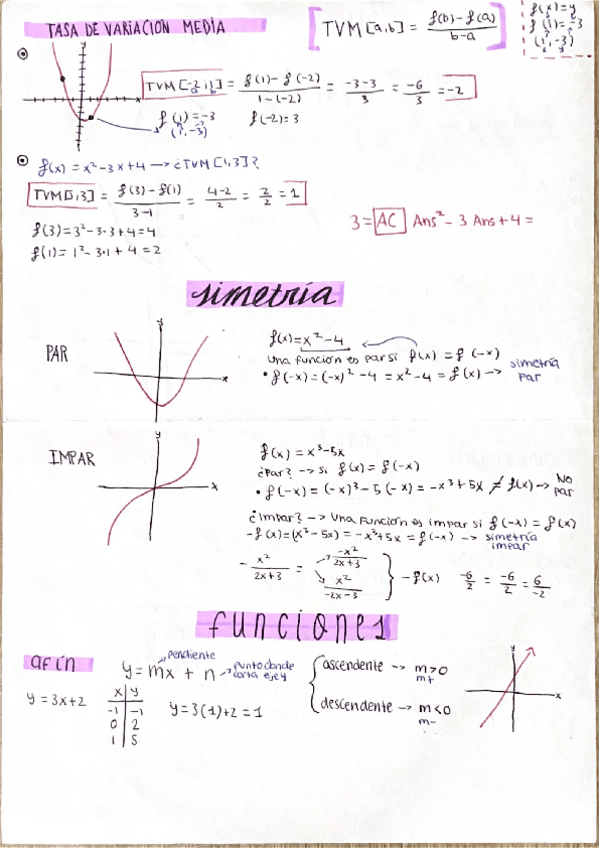 TASA DE VARIACIÓN MEDIA
TVM [a,b] = f(b) - f(a) / b-a
f(x) = y
f(1) = -3
(1, -3)
TVM [-2,1] = f(1) - f(-2) / 1-(-2) = -3-3 / 3 = -6 / 3 = -2
f(1) = -3
(1, -3)
f(-2) = 3
f(x) = x² - 3x + 4 → ¿TVM [1,3]?
TVM[1,3] = f(3) - f(1) / 3-1 = 4-2 / 2 = 2 / 2 = 1
f(3) = 3² - 3·3 + 4 = 4
f(1) = 1² - 3·1 + 4 = 2
3 = AC Ans² - 3 Ans + 4 =
simetría
PAR
y
x
f(x) = x² - 4
Una función es par si f(x) = f(-x)
• f(-x) = (-x)² - 4 = x² - 4 = f(x) → simetría par
IMPAR
y
x
f(x) = x³ - 5x
¿Par? → si f(x) = f(-x)
• f(-x) = (-x)³ - 5(-x) = -x³ + 5x ≠ f(x) → No par
¿Impar? → Una función es impar si f(-x) = f(x)
-f(x) = (x³ - 5x) = -x³ + 5x = f(-x) → simetría impar
- x² / 2x+3 = -x² / 2x+3
x² / -2x-3
-f(x)
-6 / 2 = -6 / 2 = 6 / -2
funciones
afín
y = mx + n
pendiente
punto donde corta eje y
ascendente → m > 0
m+
descendente → m < 0
m-
y = 3x + 2
x | y
-1 | -1
0 | 2
1 | 5
y = 3(1) + 2 = 1
y
x